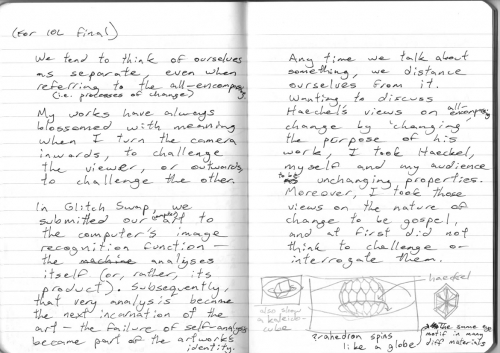 (for 102 final)
We tend to think of ourselves
as separate, even when
referring to the all-encompassing
(i.e. processes of change)
My works have always
blossomed with meaning
when I turn the camera
inwards, to challenge
the viewer, or outwards,
to challenge the other.
In Glitch Swap, we
submitted our art to
the computer's image
recognition function —
the machine analyses
itself (or, rather, its
product). Subsequently,
that very analysis became
the next incarnation of the
art — the failure of self-analysis
became part of the artwork's
identity.
Any time we talk about
something, we distance
ourselves from it.
Wanting to discuss
Haeckel's views on all-encompassing
change by changing
the purpose of his
work, I took Haeckel,
myself and my audience
to be unchanging properties.
Moreover, I took those
views on the nature of
change to be gospel,
and at first did not
think to challenge or
interrogate them.
haeckel
also show
a kaleido-
cube
spins
like a globe
The same
motif in many
diff materials